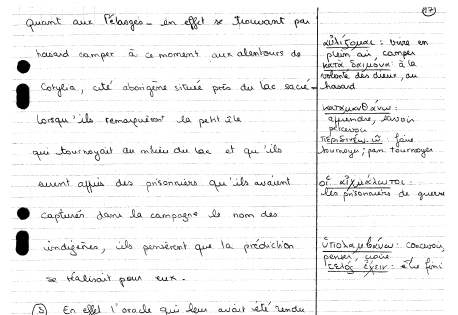 Quant aux Pélasges - en effet se trouvant par
hasard camper à ce moment aux alentours de
Cotylia, cité aborigène située près du lac sacré -
lorsqu'ils remarquèrent la petite île
qui tournoyait au milieu du lac et qu'ils
eurent appris des prisonniers qu'ils avaient
capturés dans la campagne le nom des
indigènes, ils pensèrent que la prédiction
se réalisait pour eux.
(3) En effet l'oracle qui leur avait été rendu
(27)
αὐλίζομαι : vivre en
plein air camper
κατὰ δαίμονα : à la
volonté des dieux, au
hasard
καταμανθάνω :
apprendre, savoir
percevoir
faire
tournoyer ; pas. tournoyer
οἱ αἰχμάλωτοι :
les prisonniers de guerre
ὑπολαμβάνω : concevoir,
penser, croire
τέλος ἔχειν : être fini